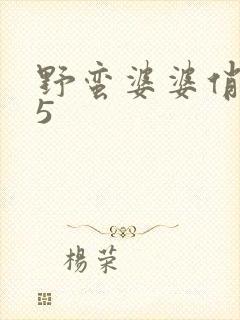 野蛮婆婆俏
5
楊荣